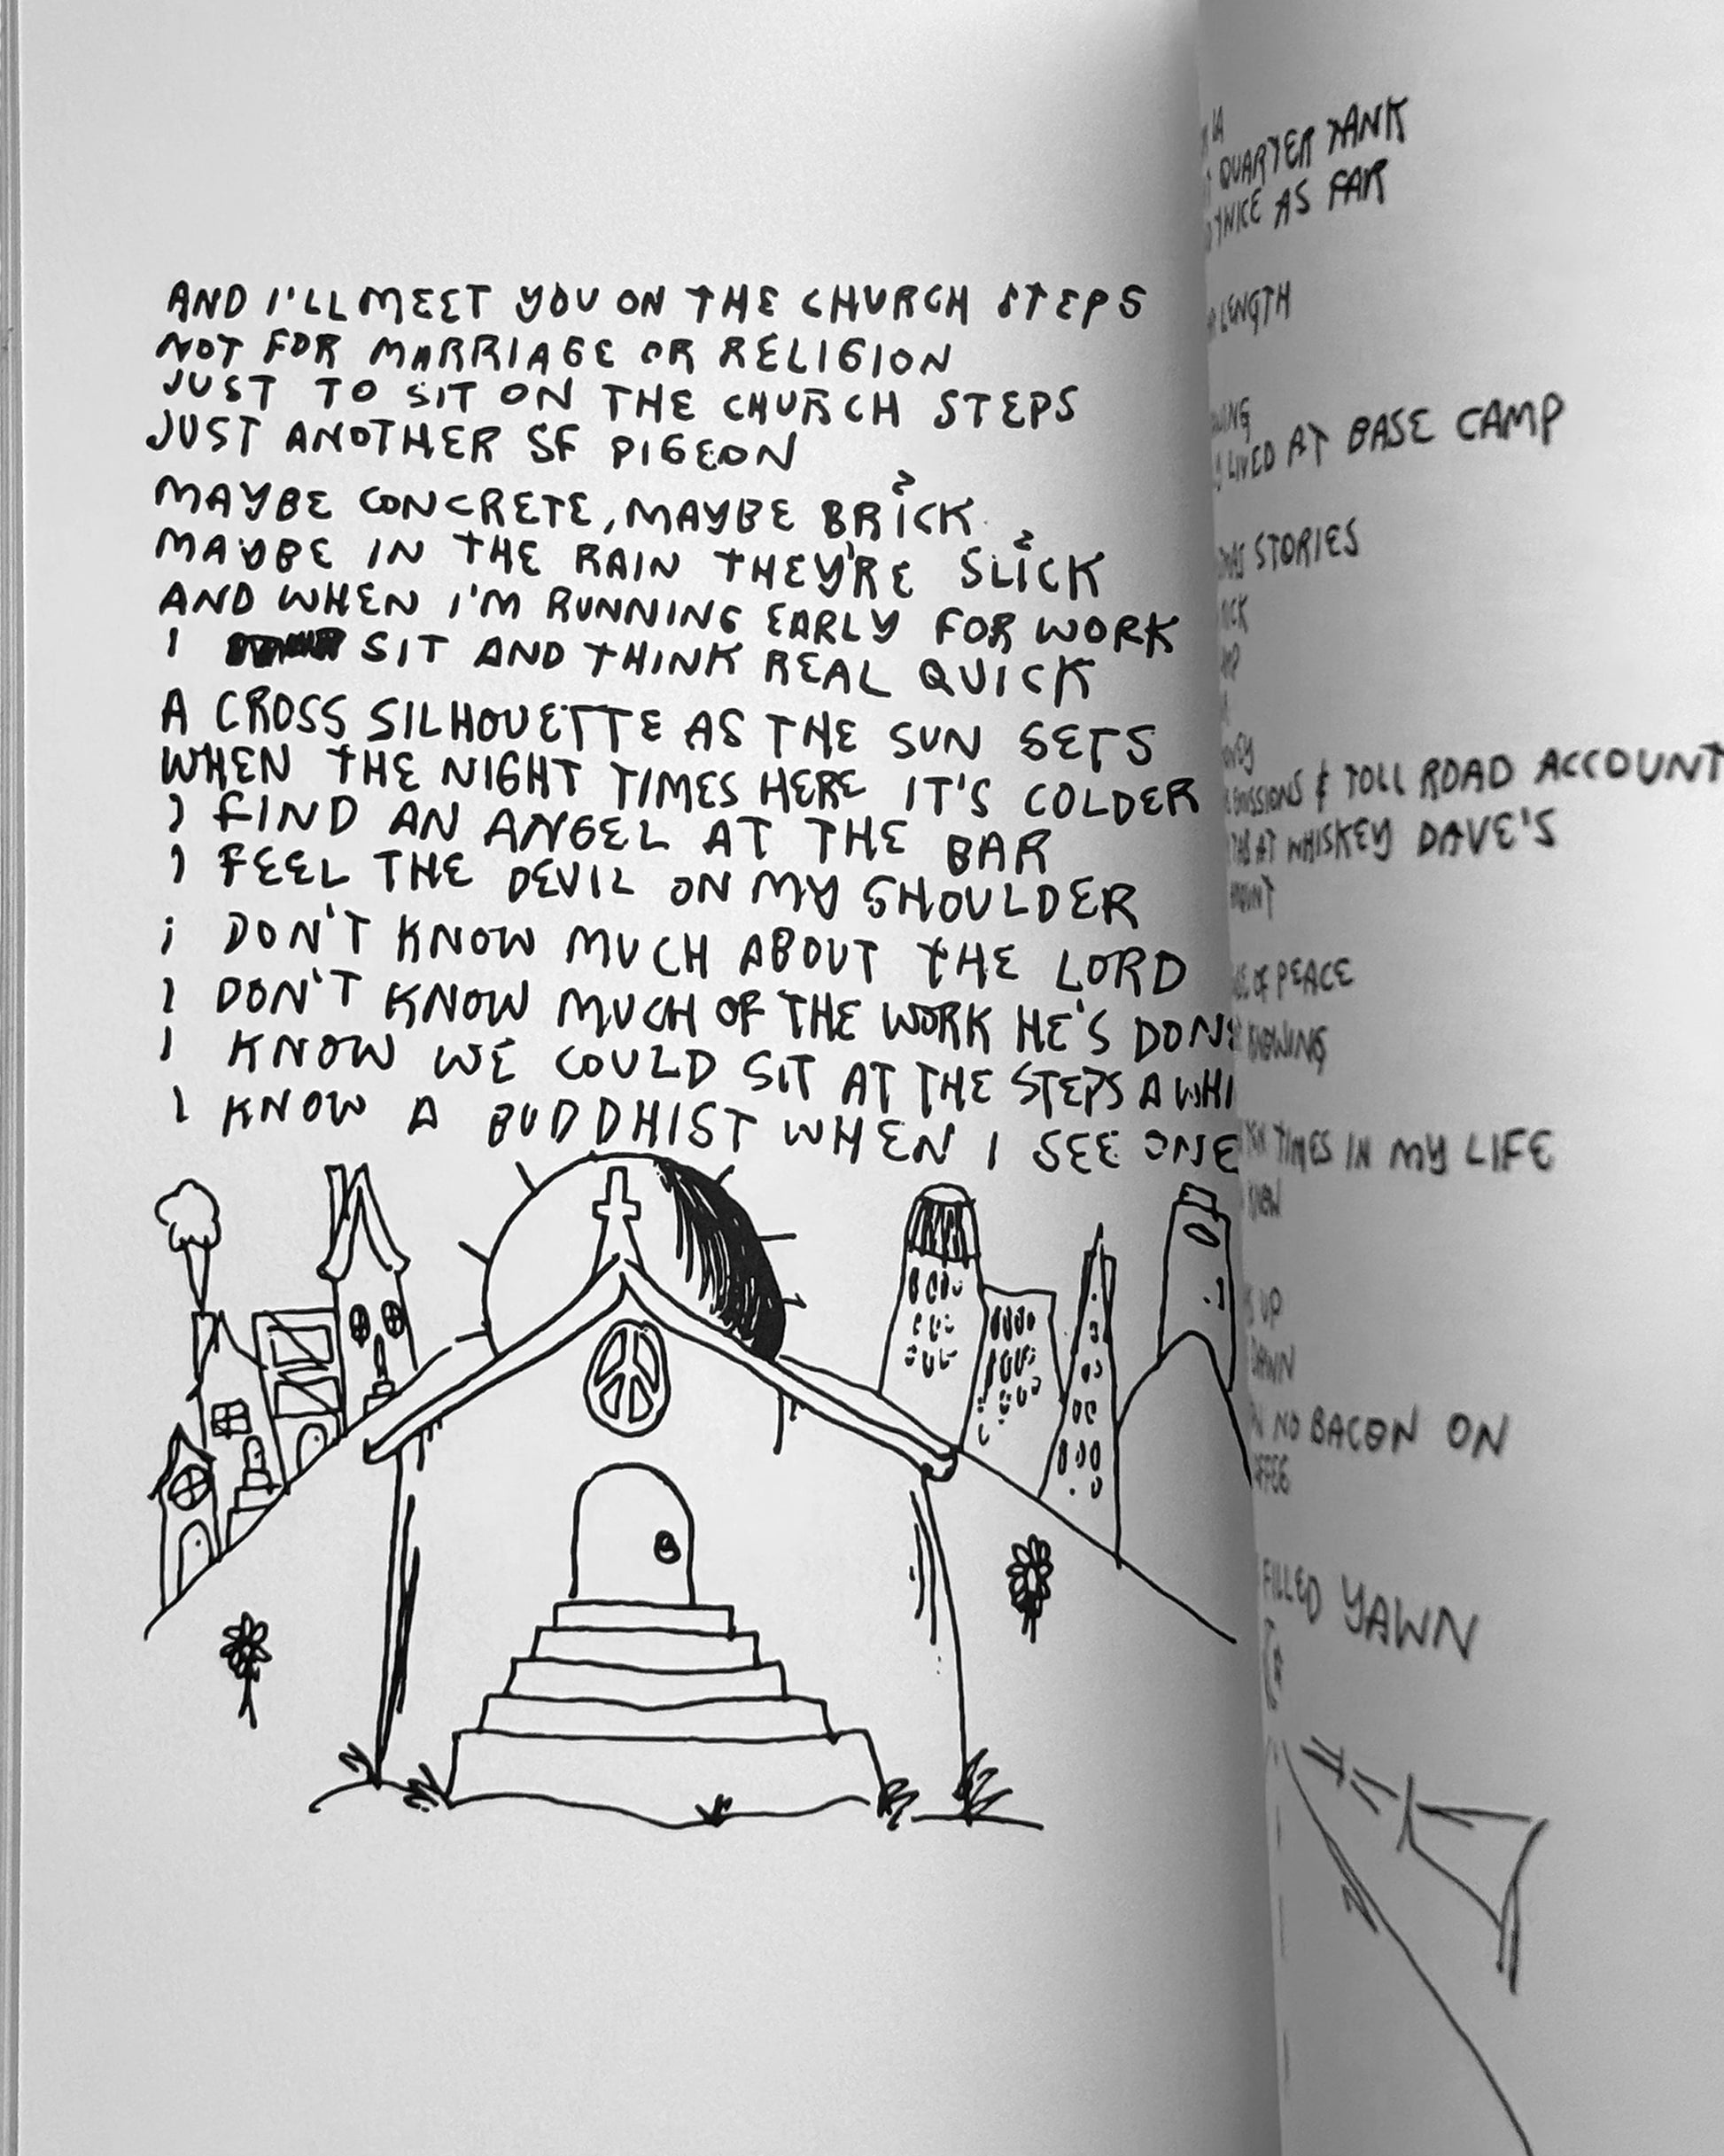 AND I'LL MEET YOU ON THE CHURCH STEPS
NOT FOR MARRIAGE OR RELIGION
JUST TO SIT ON THE CHURCH STEPS
JUST ANOTHER SF PIGEON
MAYBE CONCRETE, MAYBE BRICK
MAYBE IN THE RAIN THEY'RE SLICK
AND WHEN I'M RUNNING EARLY FOR WORK
I SIT AND THINK REAL QUICK
A CROSS SILHOUETTE AS THE SUN SETS
WHEN THE NIGHT TIMES HERE IT'S COLDER
I FIND AN ANGEL AT THE BAR
I FEEL THE DEVIL ON MY SHOULDER
I DON'T KNOW MUCH ABOUT THE LORD
I DON'T KNOW MUCH OF THE WORK HE'S DON
I KNOW WE COULD SIT AT THE STEPS A WHI
I KNOW A BUDDHIST WHEN I SEE ONE
LA
QUARTER TANK
TWICE AS FAR
LENGTH
LIVED AT BASE CAMP
STORIES
& TOLL ROAD ACCOUNT
AT WHISKEY DAVE'S
OF PEACE
TIMES IN MY LIFE
UP
NO BACON ON
FILLED YAWN